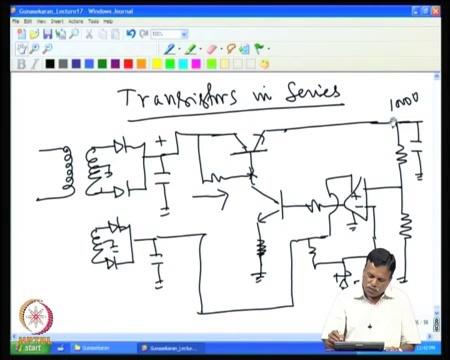 Gunasekaran_Lecture17 - Windows Journal
File Edit View Insert Actions Tools Help
100%
Transistors in Series
+
NPTEL
start
Gunasekaran
Gunasekaran_Lectur...